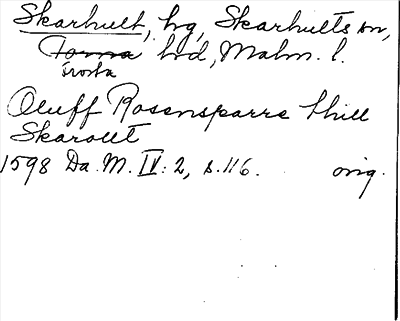 Skarhult, hg, Skarhults sn,
Torna hd, Malm. l.
Frosta
Oluff Rosensparre thill
Skarollt
1598 Da. M. IV: 2, s. 116. orig.